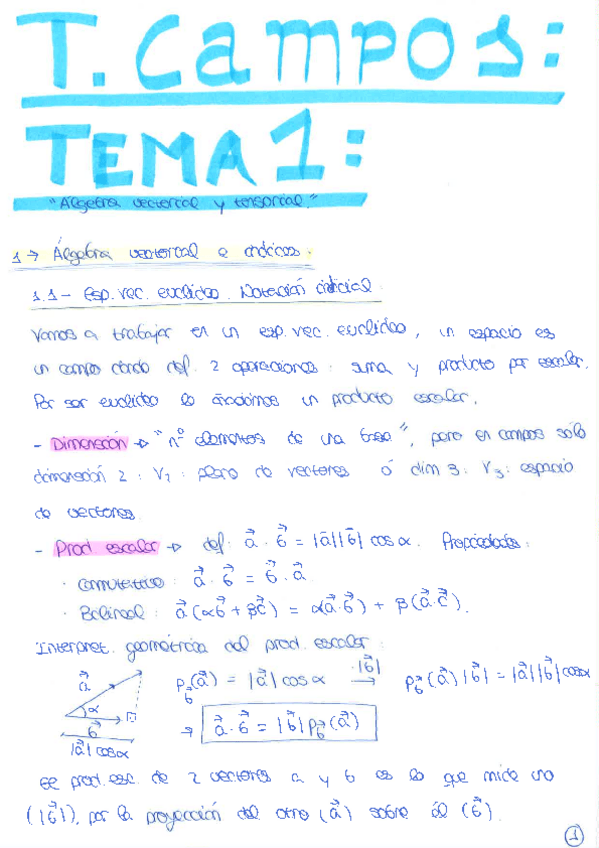 T. Campos:
TEMA 1:
"Álgebra vectorial y tensorial."
1 → Álgebra vectorial e índices.
1.1- Esp. vec. euclídeo. Notación indicial.
Vamos a trabajar en un esp. vec. euclídeo, un espacio es
un campo donde def. 2 operaciones: suma y producto por escalar.
Por ser euclídeo le añadimos un producto escalar.
- Dimensión → "nº elementos de una base", pero en campos sólo
dimensión 2: V₂: plano de vectores ó dim 3: V₃: espacio
de vectores.
- Prod escalar → def: a⃗ · b⃗ = |a⃗||b⃗| cos α. Propiedades:
· conmutativo: a⃗ · b⃗ = b⃗ · a⃗
· Bilineal: a⃗(αb⃗ + βc⃗) = α(a⃗·b⃗) + β(a⃗·c⃗).
Interpret. geométrica del prod. escalar:
a⃗ α b⃗ |a⃗| cos α
P_b⃗(a⃗) = |a⃗| cos α —·|b⃗|→ P_b⃗(a⃗)|b⃗| = |a⃗||b⃗| cos α
→ a⃗ · b⃗ = |b⃗| P_b⃗(a⃗)
El prod. esc. de 2 vectores a y b es lo que mide uno
(|b⃗|), por la proyección del otro (a⃗) sobre él (b⃗).
1